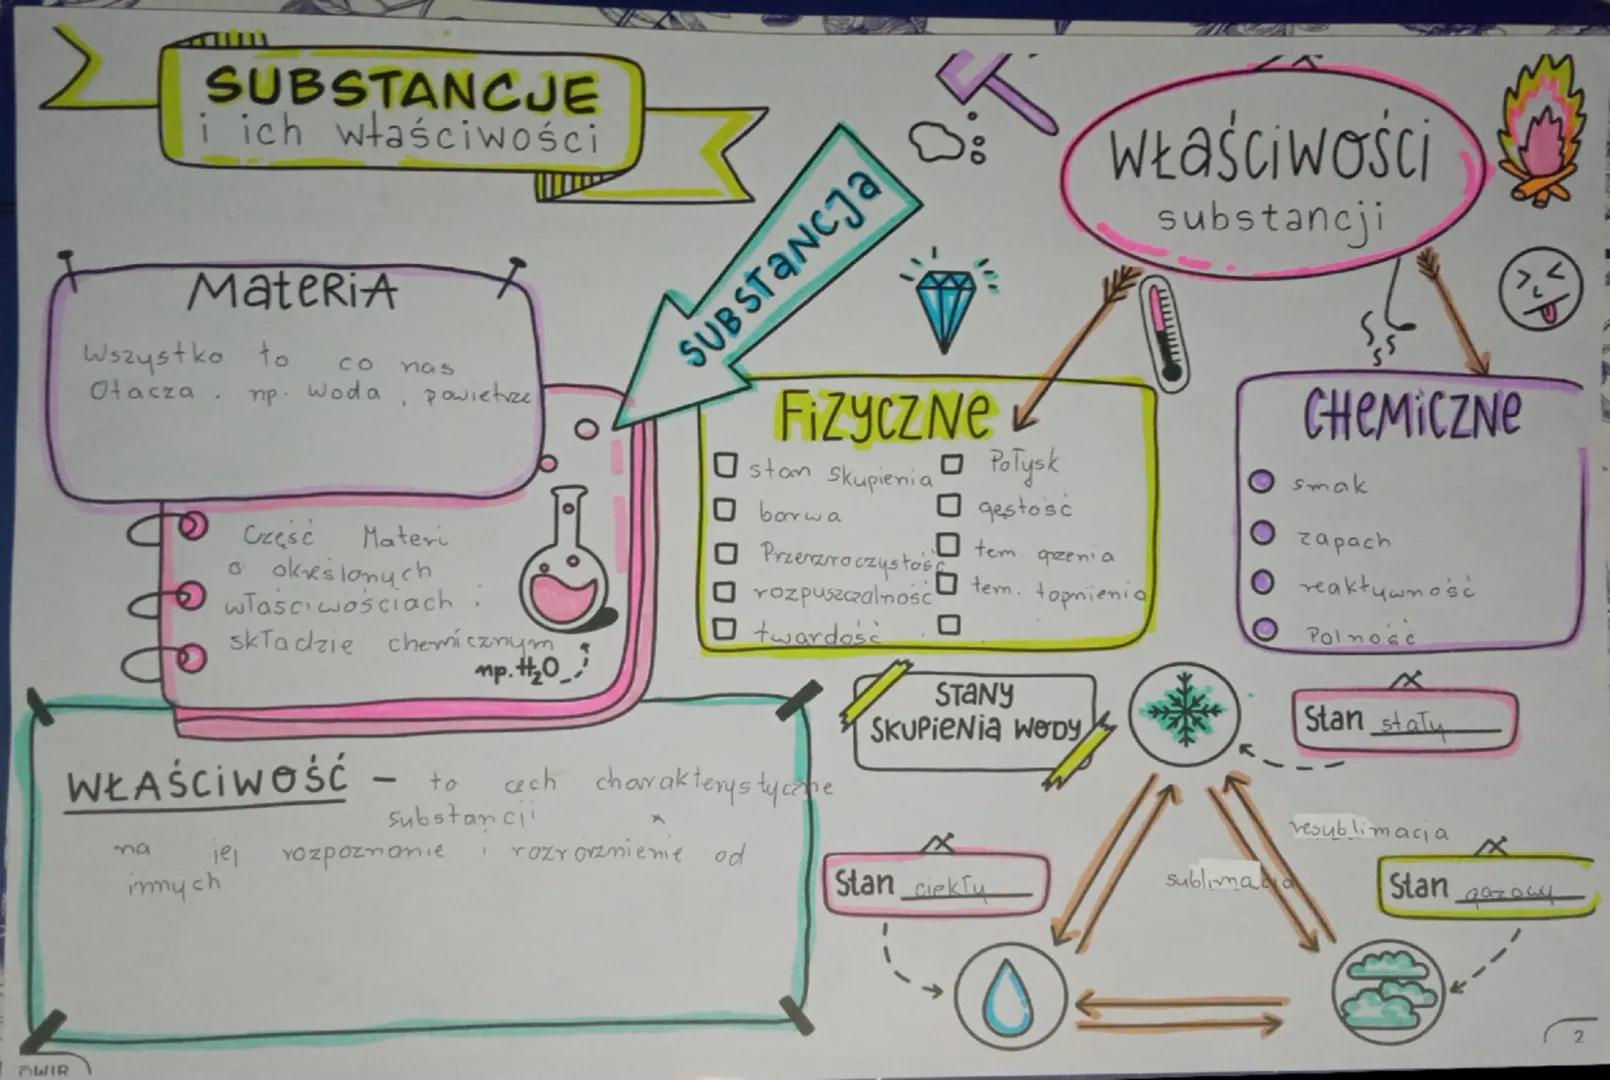 SUBSTANCJE
i ich właściwości
MateRiA
Wszystko to co nas
Otacza. np. woda, powietrze
SUBSTANCJa
Część Materi
o określonych
właściwościach i
składzie chemicznym
np. H₂O
WŁAŚCiWOŚĆ - to cech charakterystyczne
substancji
na jej rozpoznanie i rozrórznienie od
innych
WłaściWOści
substancji
FiZYCZNe
stan skupienia
barwa
Przerzroczystość
rozpuszczalność
twardość
Połysk
gęstość
tem. grzenia
tem. topnienia
CHeMiCZNe
smak
zapach
reaktywność
Palność
STANY
SKUPIENIA WODY
Stan stały
resublimacja
sublimacja
Stan ciekły
Stan gazowy
2